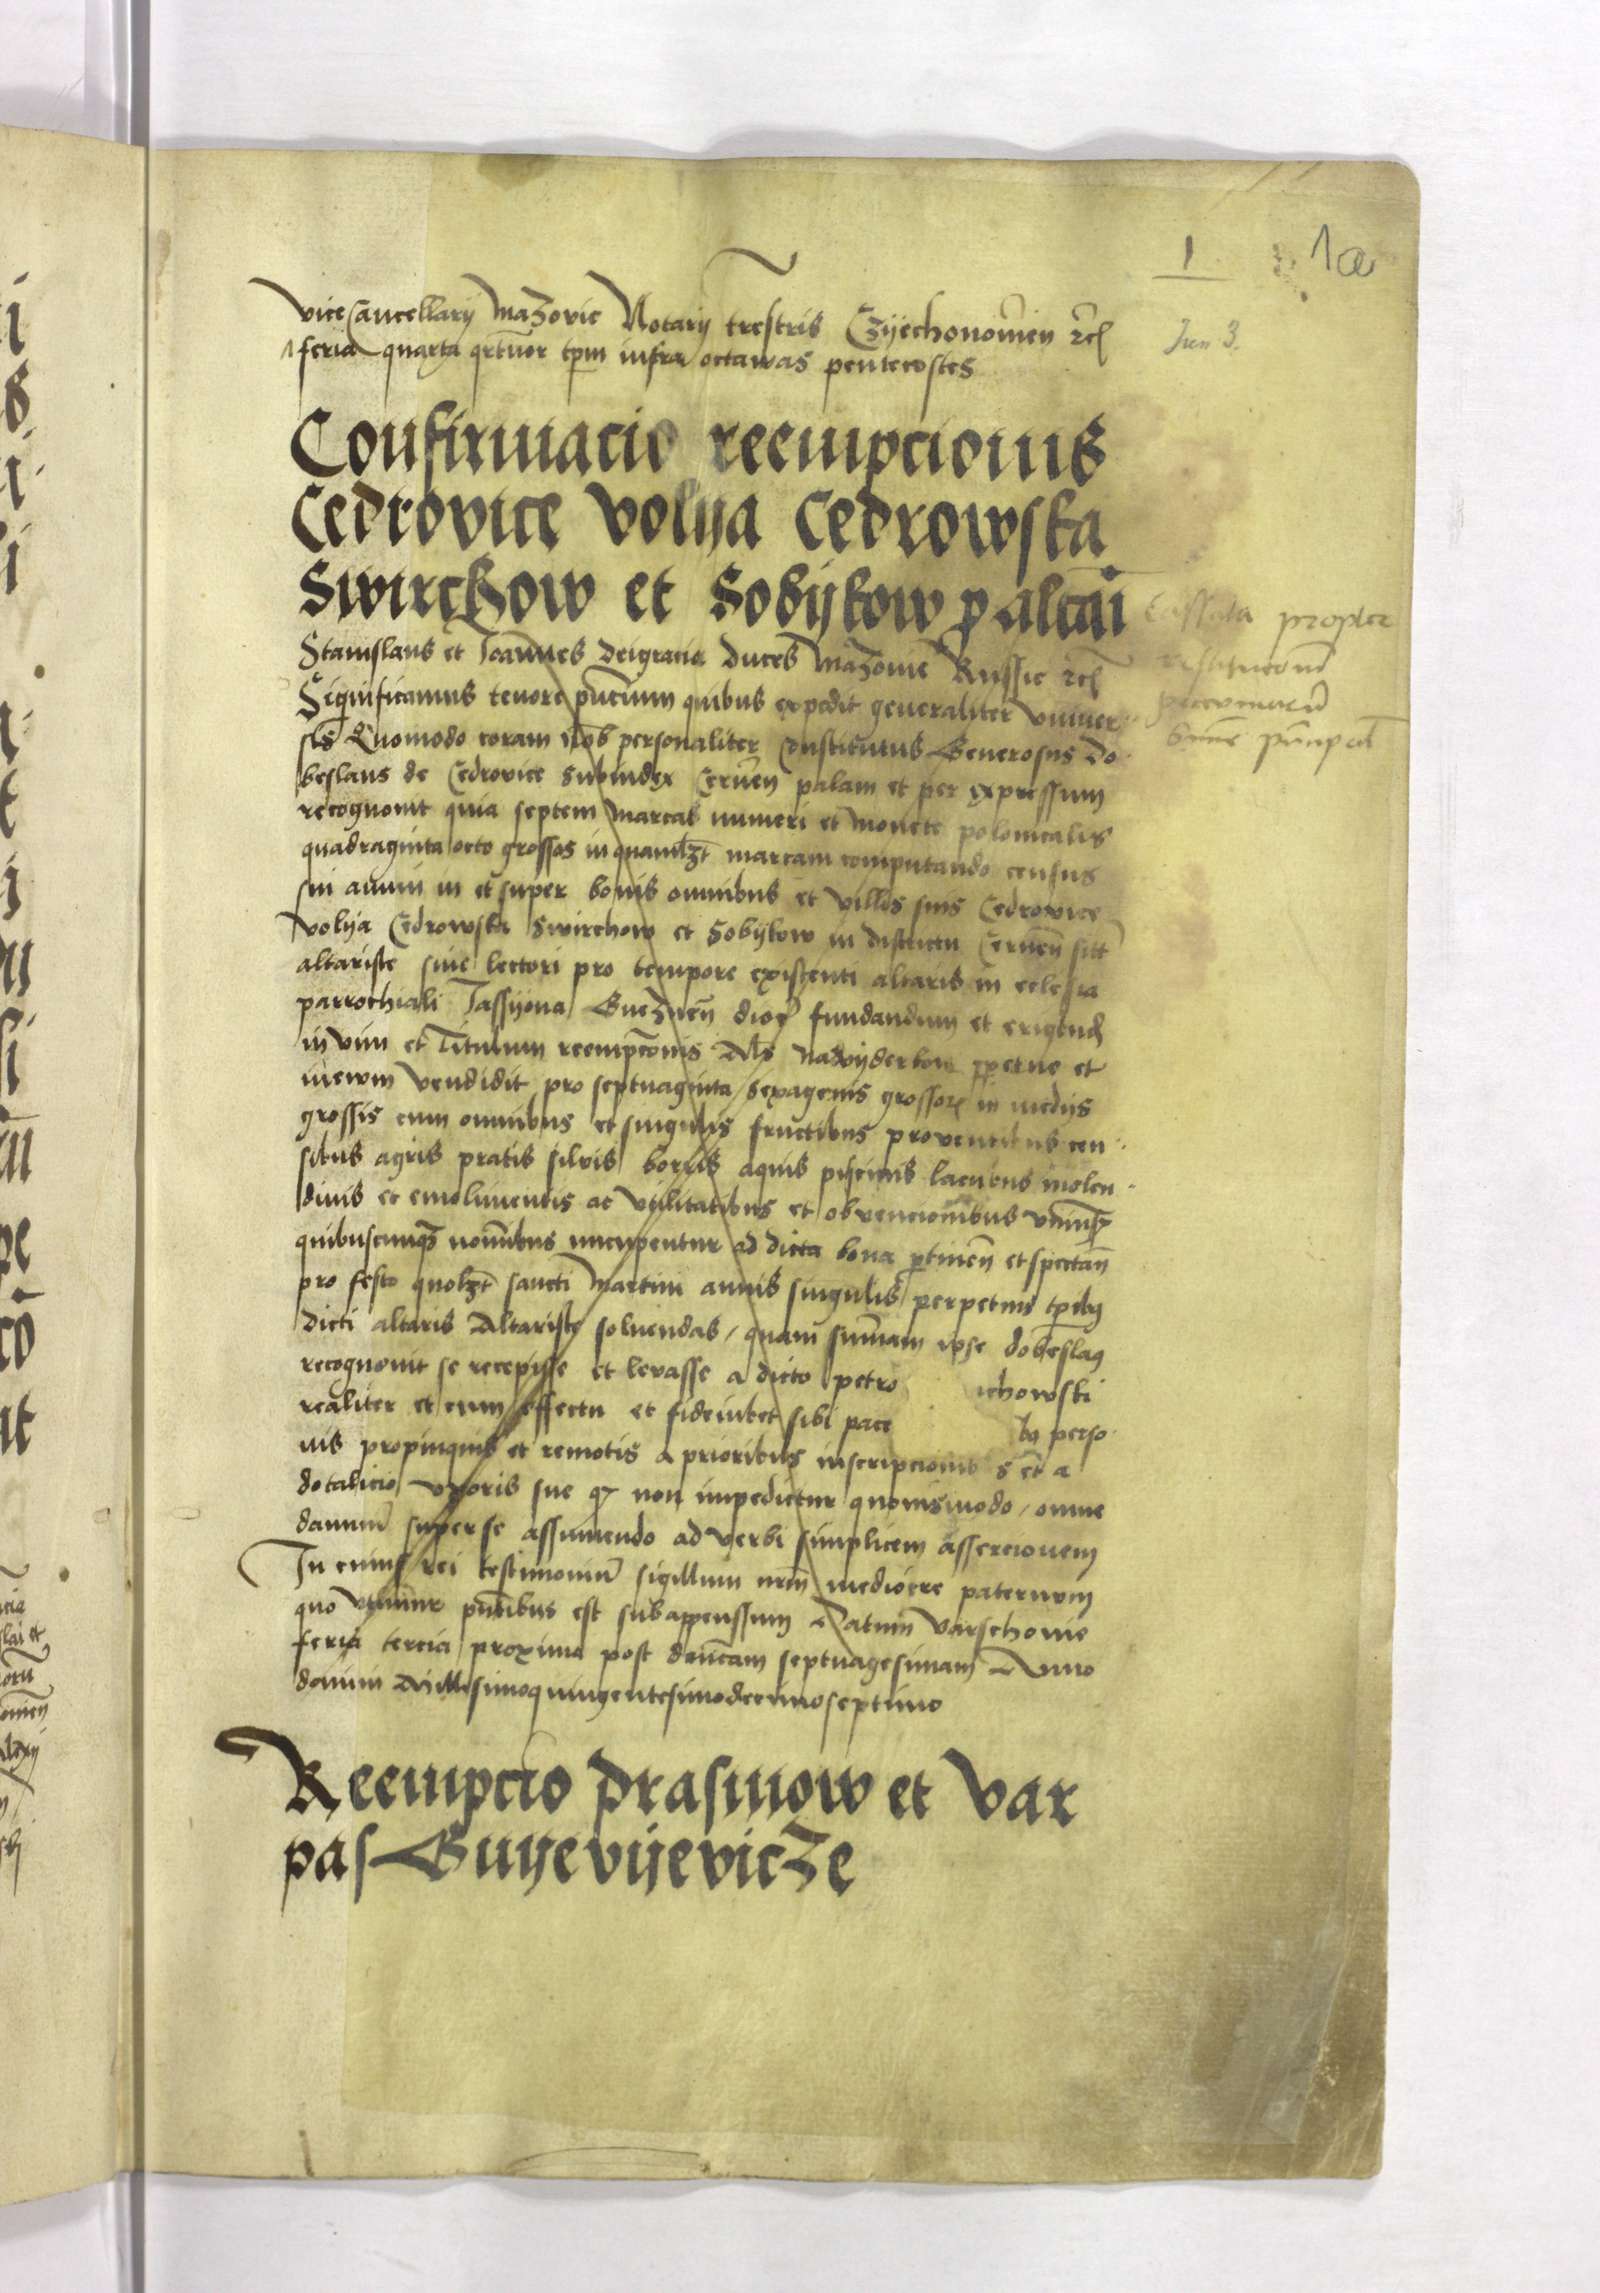 1
1a
Vicecancellarij Mazovie Notarij trestris Czyechonovien etc
feria quarta qrtuor tpm infra octavas pentecostes
Jun 3.
Confirmacio reempcionis
Cedrovice Volija Cedrowska
Swirchow et Sobijkow p altari
Stanislaus et Joannes deigracia duces Mazovie Russie etc
Significamus tenore pncium quibus expedit generaliter vniuer
sis Quomodo coram nob personaliter Constitutus Generosus Do
beslaus de Cedrovice Subiudex Cernen palam et per expressum
recognovit quia septem marcas numeri et monete polonicalis
quadraginta octo grossos in quamlzt marcam computando census
sui annui in et super bonis omnibus et villis suis Cedrovice
Volija Cedrowska Swirchow et Sobijkow in districtu Cernen sitt
altariste siue lectori pro tempore existenti altaris in ecclesia
parrochiali Jassijona Gneznen dioc fundandum et erigend
in vim et Titulum reempconis Als nawijderkow ppetue et
inewm vendidit pro septuaginta sexagenis grossor in medijs
grossis cum omnibus et singulis fructibus proventibus cen
sibus agris pratis silvis borris aquis piscinis lacubus molen
dinis et emolimentis ac vtilitatibus et obvencionibus vniusq
quibuscunqz nominibus nuncupentur ad dicta bona ptinen et spectan
pro festo quolzt sancti Martini annis singulis perpetuis tpibus
dicti altaris Altariste soluendas / quam summam ipse dobeslaus
recognovit se recepisse et levasse a dicto petro ichowski
realiter et cum effectu et fideiubet sibi pace bus perso
nis propinquis et remotis a prioribus inscripcionib s et a
dotalicio vxoris sue q non impedietur quovismodo / omne
damnum super se assumendo ad verbi simplicem assercionem
In cuius rei testimonium sigillum nrm mediocre paternum
quo vtimur pntibus est subappenssum Datum Varschovie
feria tercia proxima post dnicam septuagesimam Anno
domini Millesimoquingentesimodecimoseptimo
Cassata propter
restitucionem
pecuniarum
summe principal
Reempcio Drasmow et Var
pas Gnijevijevicze